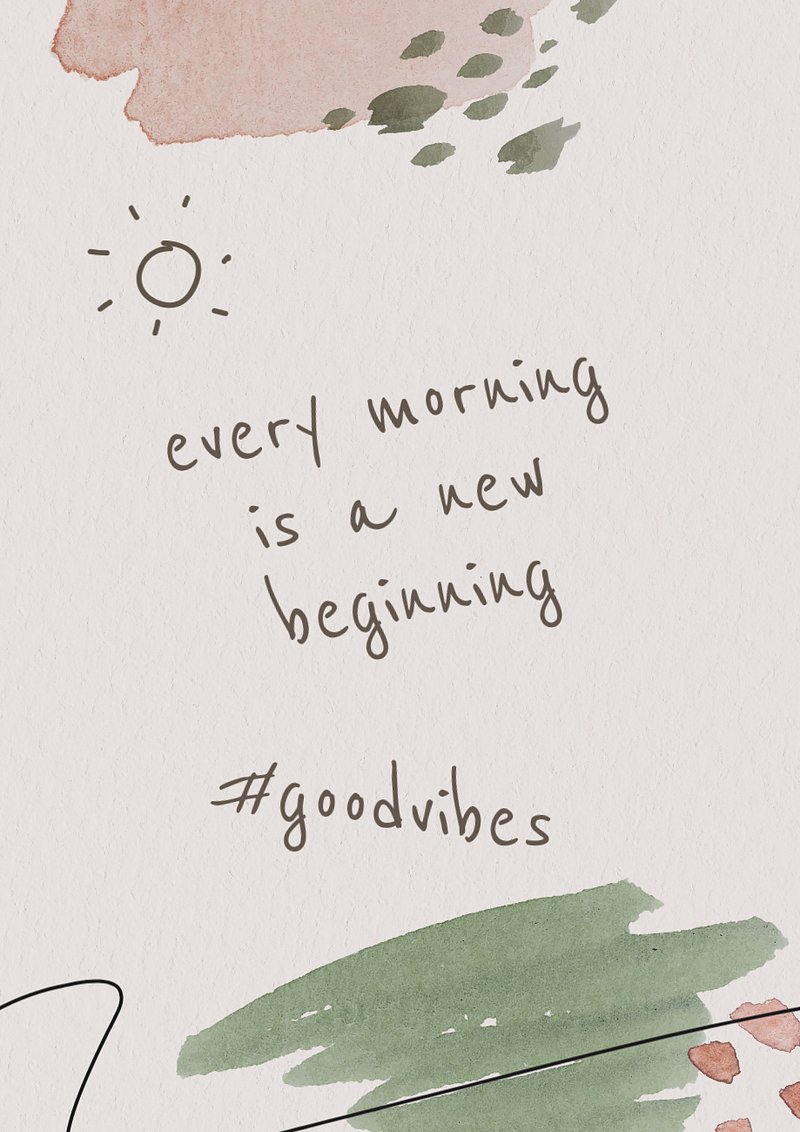 every morning
is a new
beginning
#goodvibes